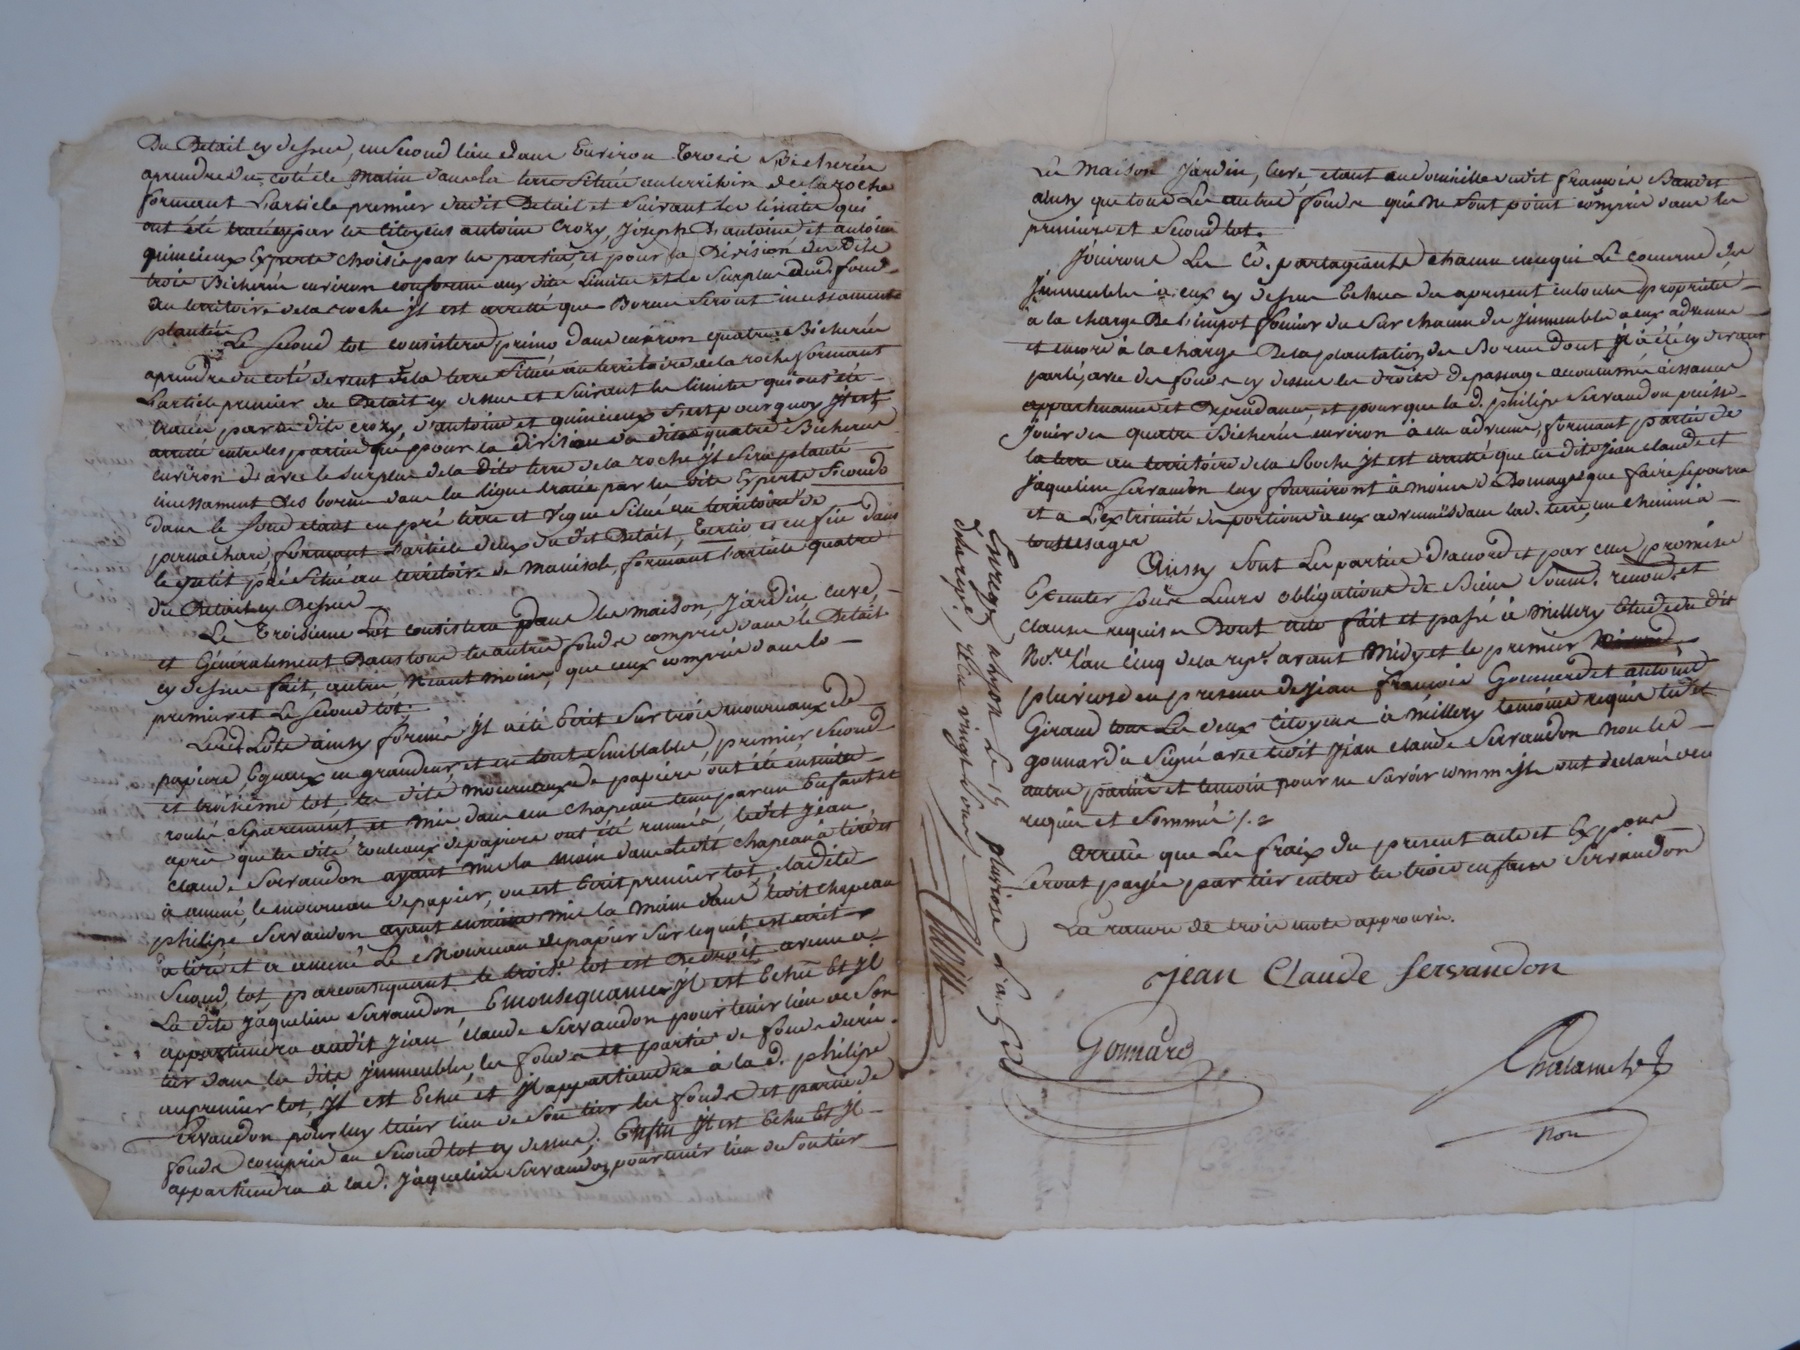 Du Detail cy dessus, en second lieu dans Environ Trois Bicherées
aprendre du coté de Matin dans la terre située au territoire de la roche
formant L'article premier dudit Detail et suivant les limites qui
ont été tracées par les Citoyens antoine Crozy, Joseph D'antoine et antoine
quincieux Experts choisis par les parties, et pour la Division des dites
trois Bicherées environ conforme aux dites Limites et le Surplus dud. fond
du territoire de la roche yl est arretté que Bornes Seront incessament
plantées
Le Second lot consistera primo dans environ quatres Bicherées
aprendre du coté de vent de la terre Située au territoire de la roche formant
L'article premier du Detail cy dessus et suivant les limites qui ont été
tracées par les dits crozy, d'antoine et quincieux, c'est pourquoy yl est
arretté entre les parties que pour la division des dites quatres Bicherées
environ d'avec le surplus de la dite terre de la roche yl sera planté
incessament des bornes dans la ligne tracée par les dits Experts, Secondo
dans le fond etant en pré terre et vigne situé au territoire de
formant L'article deux du dit Detail, Tertio et en fin dans
le petit pré Situé au territoire de formant l'article quatre
du Detail cy Dessus
Le Troisieme Lot consistera dans les maison, Jardin, cuve,
et Généralement Dans tous les autres fonds compris dans le Detail
cy dessus fait, autres Neant moins, que ceux compris dans le
premier et Le Second lot.
Lesd. Lots ainsy formés yl a été Ecrit sur trois mourceaux de
papiers, Egaux en grandeur, et en tout semblables, premier second
et troisième lot. les dits mourceaux de papiers ont été ensuite
roulés separement, et mis dans un chapeau tenu par un Enfant et
après que les dits rouleaux de papiers ont été remués, ledit Jean
claude Servandon ayant mis la main dans ledit chapeau a tiré et
a amené, le mourceau de papier, ou est Ecrit premier lot, ladite
philipe Servandon ayant ensuite mis la main dans ledit chapeau
a tiré et a amené Le Mourceau de papier sur lequel est ecrit
Second lot, par consequant le trois.e lot est De droit avenu a
La dite Jaqueline Servandon. En consequance yl est Echu Et yl
appartiendra audit Jean claude Servandon pour tenir lieu de son
tier dans les dits Immeubles, les fonds et partie de fonds
au premier lot, yl est Echu et yl appartiendra à la d. philipe
Servandon pour luy tenir lieu de son tier les fonds et partie de
fonds compris au Second lot cy dessus; Enfin yl est Echu Et yl
appartiendra à la d. Jaqueline Servandon pour tenir lieu de son tier
Les Maison Jardin, Cuve etant au domicille dudit François Bandet
ainsy que tous Les autres fonds qui ne sont point compris dans les
premier et Second lot.
Jouiront Les Co. partageants chacun en ce qui Le concerne des
Immeubles à eux cy dessus Echus des apresent en toute propriété
à la charge De L'impot foncier du sur chacun des Immeubles a eux advenus
et encore à la charge De la plantation des Bornes dont yl a été cy devant
parlé, avec des fonds cy dessus les droits De passage accoutumés aisances
appartenances et Dependances, et pour que la d. philipe Servandon puisse
Jouir des quatre Bicherées environ à elle advenues, formant partie de
la terre au territoire de la Roche yl est arretté que les dits Jean claude et
Jaqueline Servandon luy fourniront à moins de Domages que faire se pourra
et a L'extremité des portions à eux advenues dans lad. terre, un chemin à
tous usages
Ainsy sont Les parties D'accord et par elles promis
Executer sous Leurs obligations de Biens Soum. renon. et
clauses requises Dont acte fait et passé à Millery Etude du dit
No.re l'an Cinq de la rep.e avant Midy et le premier
pluviose en presence de Jean François Gonnard et antoine
Giraud tous Les deux Citoyens à Millery temoins requis led.
Gonnard a signé avec ledit Jean claude Servandon non les
autres parties et temoin pour ne savoir comm yls ont declaré de ce
requis et sommés /.
Arretté que Les fraix du present acte et Expons
Seront payés par tier entre les trois enfans Servandon
La rature de trois mots approuvée.
Jean Claude Servandon
Gonnard
Chalamel
Non
Enregé à Lyon Le 15 pluviose L'an 5